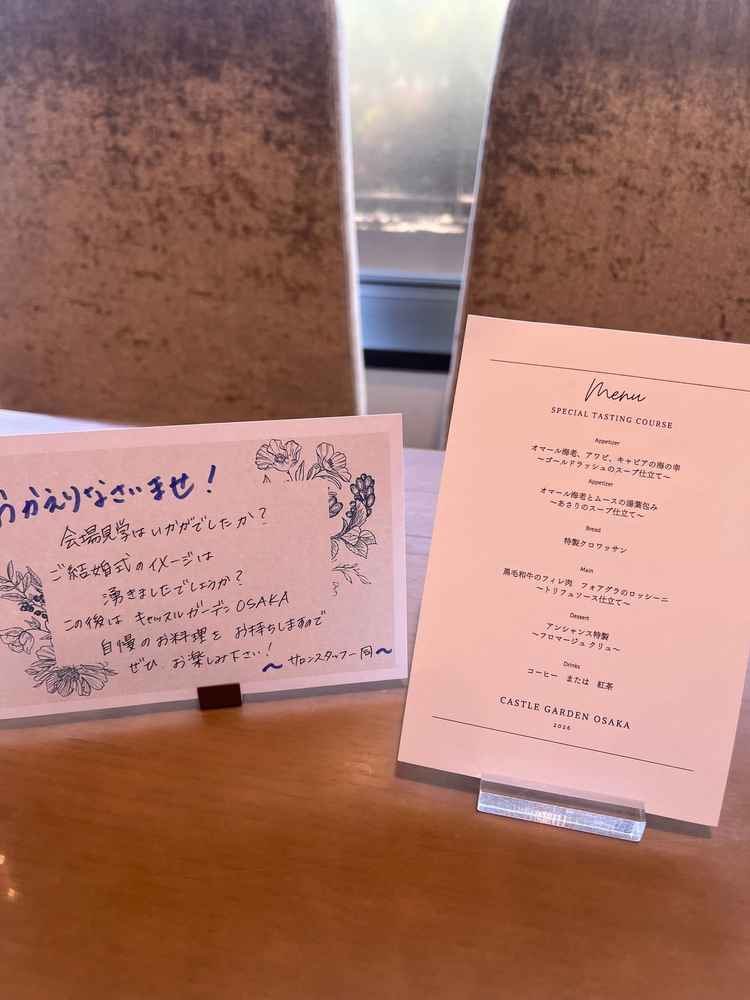 おかえりなさいませ！
会場見学はいかがでしたか？
ご結婚式のイメージは
湧きましたでしょうか？
この後は キャッスルガーデン OSAKA
自慢のお料理を お持ちしますので
ぜひ お楽しみ下さい！
〜 サロンスタッフ一同 〜
Menu
SPECIAL TASTING COURSE
Appetizer
オマール海老、アワビ、キャビアの海の幸
〜ゴールドラッシュのスープ仕立て〜
Appetizer
オマール海老とムースの湯葉包み
〜あさりのスープ仕立て〜
Bread
特製クロワッサン
Main
黒毛和牛のフィレ肉 フォアグラのロッシーニ
〜トリフュソース仕立て〜
Dessert
アンシャンス特製
〜フロマージュ クリュ〜
Drinks
コーヒー または 紅茶
CASTLE GARDEN OSAKA
2026